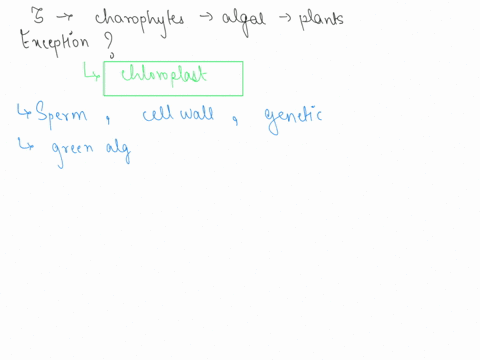 5 → charophytes → algal → plants
Exception ?
↳ chloroplast
↳ Sperm , cell wall , genetic
↳ green alg